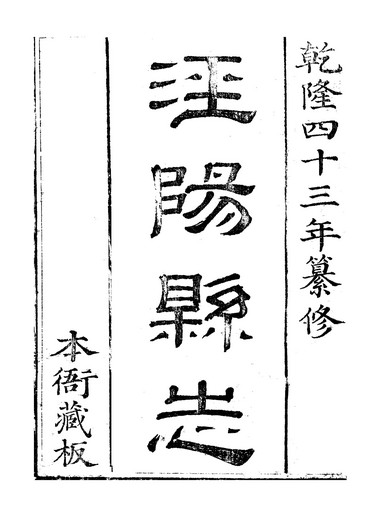 乾隆四十三年纂修
涇陽縣志
本衙藏板